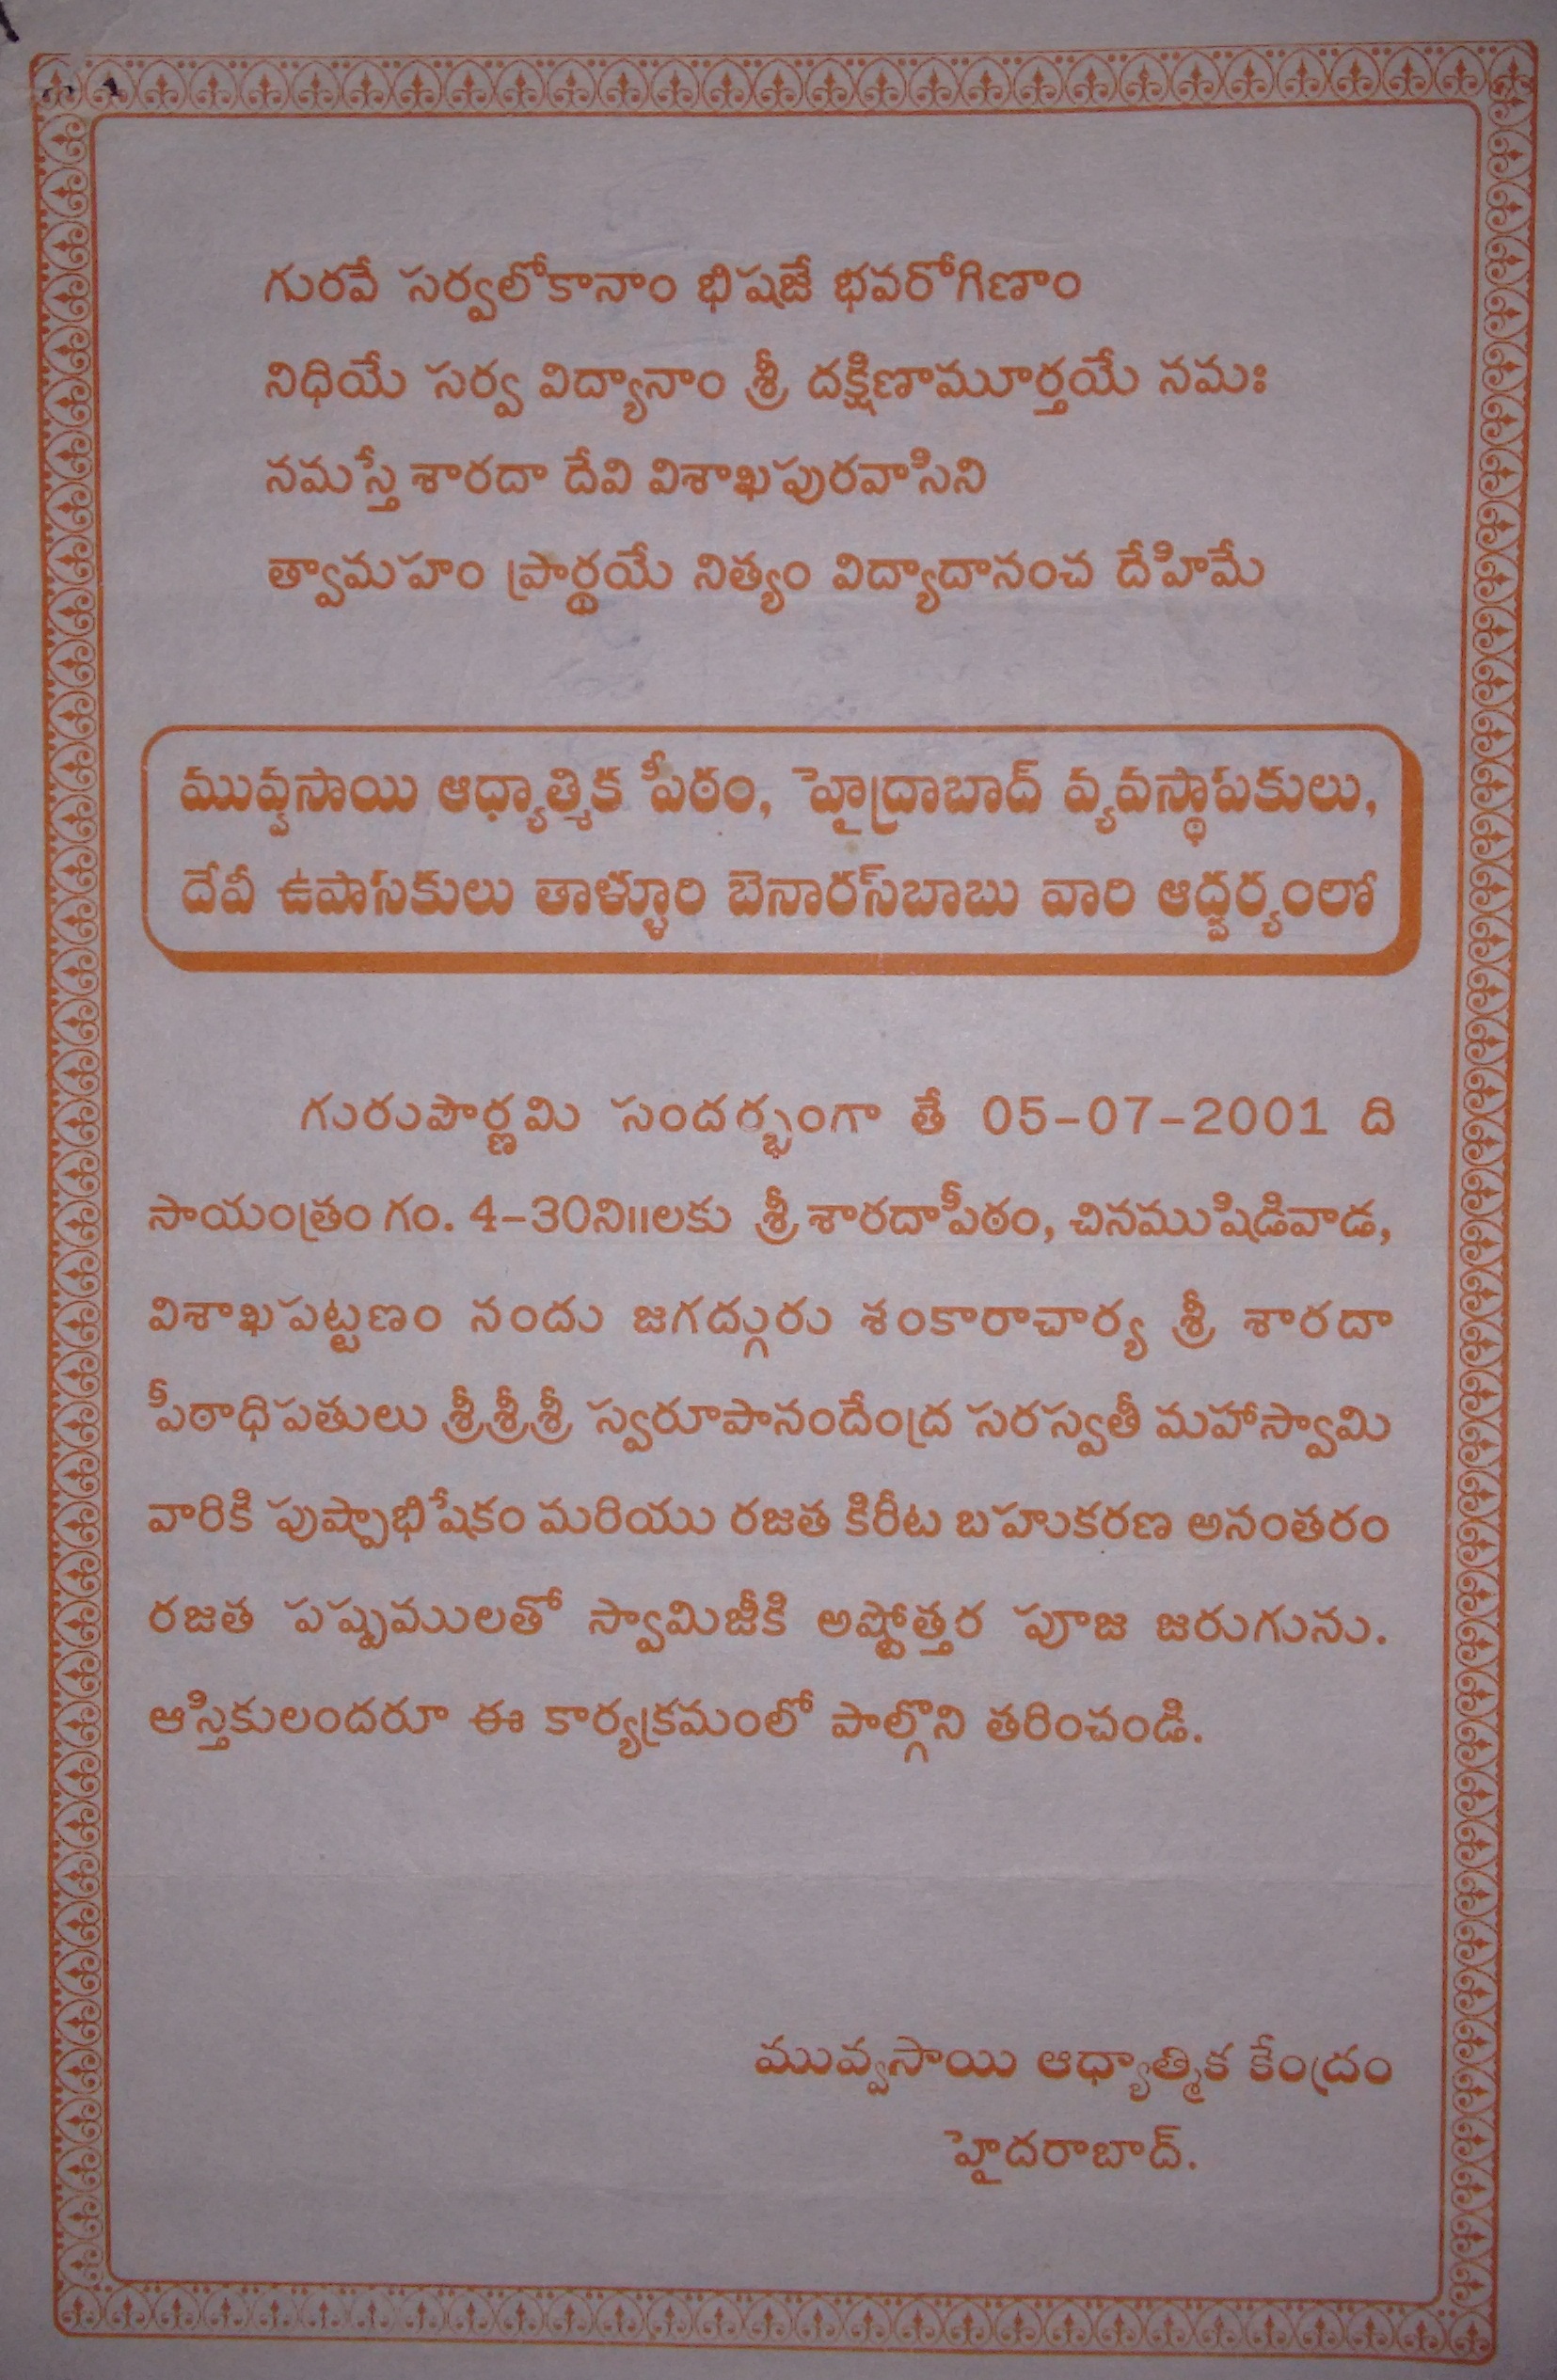 గురవే సర్వలోకానాం భిషజే భవరోగిణాం
నిధియే సర్వ విద్యానాం శ్రీ దక్షిణామూర్తయే నమః
నమస్తే శారదా దేవి విశాఖపురవాసిని
త్వామహం ప్రార్థయే నిత్యం విద్యాదానంచ దేహిమే
మువ్వసాయి ఆధ్యాత్మిక పీఠం, హైద్రాబాద్ వ్యవస్థాపకులు,
దేవీ ఉపాసకులు తాళ్ళూరి బెనారస్‌బాబు వారి ఆధ్వర్యంలో
గురుపౌర్ణమి సందర్భంగా తే 05-07-2001 ది
సాయంత్రం గం. 4-30ని॥లకు శ్రీ శారదాపీఠం, చినముషిడివాడ,
విశాఖపట్టణం నందు జగద్గురు శంకారాచార్య శ్రీ శారదా
పీఠాధిపతులు శ్రీశ్రీశ్రీ స్వరూపానందేంద్ర సరస్వతీ మహాస్వామి
వారికి పుష్పాభిషేకం మరియు రజత కిరీట బహుకరణ అనంతరం
రజత పష్పములతో స్వామిజీకి అష్టోత్తర పూజ జరుగును.
ఆస్తికులందరూ ఈ కార్యక్రమంలో పాల్గొని తరించండి.
మువ్వసాయి ఆధ్యాత్మిక కేంద్రం
హైదరాబాద్.